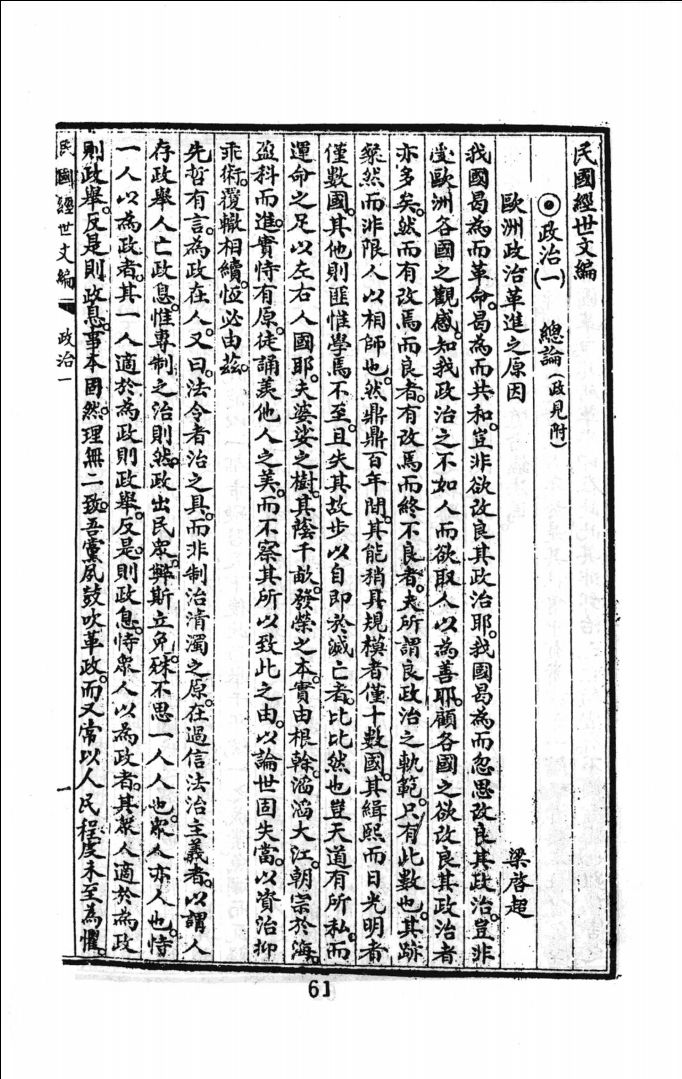 民國經世文編
⊙政治(一)　總論(政見附)
歐洲政治革進之原因
梁啓超
我國曷為而革命。曷為而共和。豈非欲改良其政治耶。我國曷為而忽思改良其政治。豈非
受歐洲各國之觀感。知我政治之不如人而欲取人以為善耶。顧各國之欲改良其政治者
亦多矣。然而有改焉而良者。有改焉而終不良者。夫所謂良政治之軌範。只有此數也。其跡
粲然而非限人以相師也。然鼎鼎百年間。其能稍具規模者僅十數國。其緝熙而日光明者
僅數國。其他則匪惟學焉不至。且失其故步以自即於滅亡者。比比然也豈天道有所私。而
運命之足以左右人國耶。夫婆娑之樹。其蔭千畝。發榮之本。實由根幹。滔滔大江。朝宗於海。
盈科而進。實恃有原。徒誦羨他人之美。而不察其所以致此之由。以論世固失當。以資治抑
乖術。覆轍相續。恆必由茲。
先哲有言。為政在人。又曰。法令者治之具。而非制治清濁之原。在過信法治主義者。以謂人
存政舉人亡政息。惟專制之治則然。政出民眾。弊斯立免。殊不思一人人也。眾人亦人也。恃
一人以為政者。其一人適於為政則政舉。反是則政息。恃眾人以為政者。其眾人適於為政
則政舉。反是則政息。事本固然。理無二致。吾黨夙鼓吹革政。而又常以人民程度未至為懼。
民國經世文編　政治一
一
61